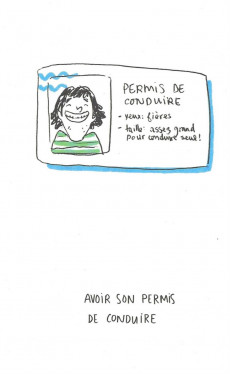 PERMIS DE
CONDUIRE
- yeux: fières
- taille: assez grand
pour conduire seul!
AVOIR SON PERMIS
DE CONDUIRE